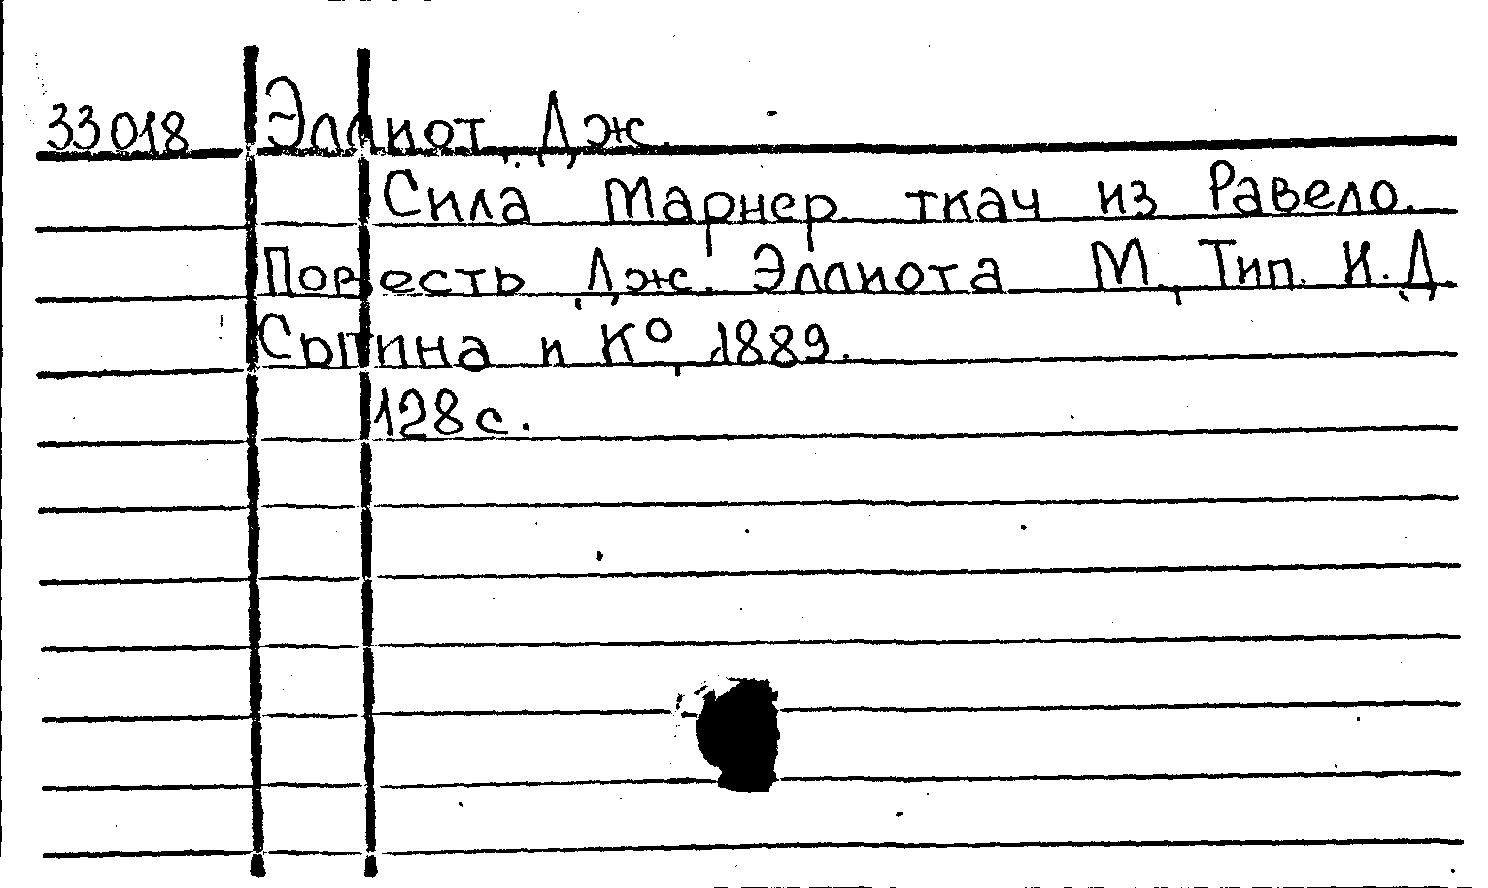 33018 Эллиот, Дж.
Сила Марнер ткач из Равело.
Повесть Дж. Эллиота М., Тип. И.Д.
Сытина и К°, 1889.
128 с.